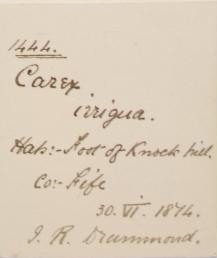 1444.
Carex
irrigua.
Hab:- Foot of Knock hill.
Co:- Fife
30. VI. 1874.
J. R. Drummond.